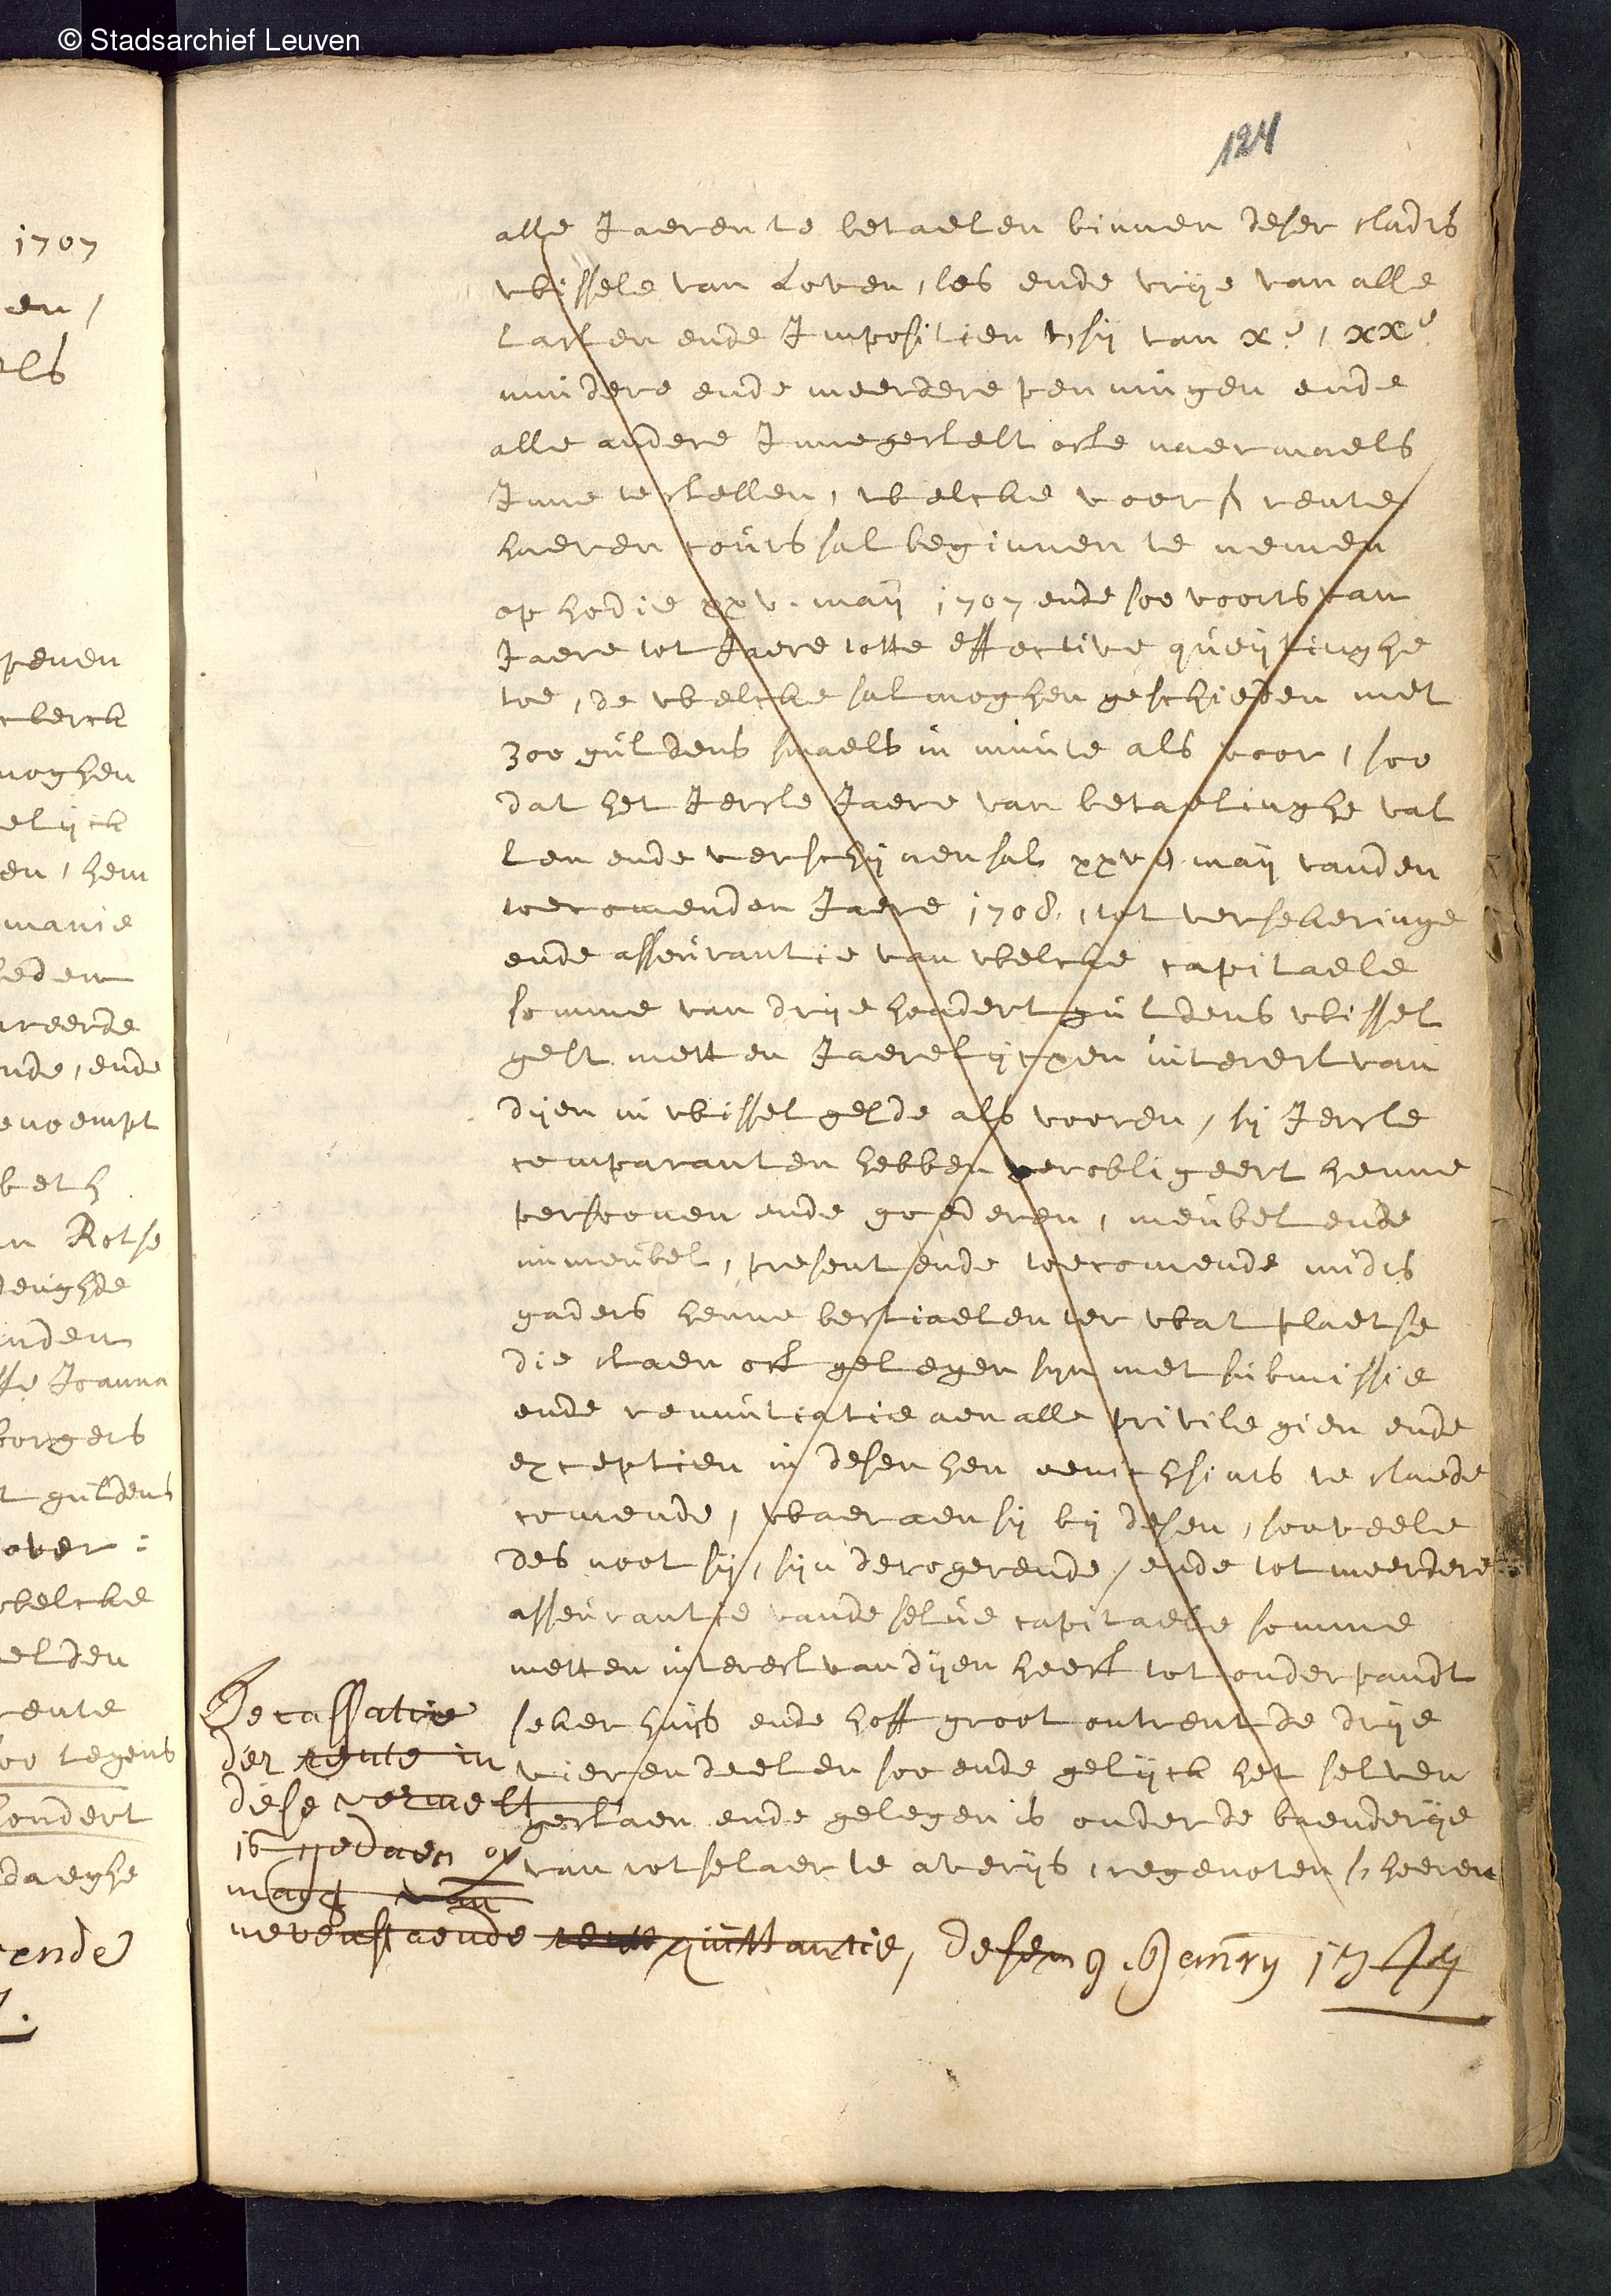 © Stadsarchief Leuven
124
alle Jaeren te betaelen binnen deser stadts
wissele van Loven, los ende vrije van alle
lasten ende Impositien t'sij van xe, xxe
mindere ende meerdere penningen ende
alle andere Innegestelt ofte naermaels
Inne te stellen, welcke voors rente
haeren cours sal beginnen te nemen
op hodie xxv. maij 1707 ende soo voorts van
Jaere tot Jaere totte effective queytinghe
toe, de welcke sal moghen geschieden met
300 guldens smaels in munte als voor, soo
dat het Ierste Jaere van betaelinghe val
len ende verschijnen sal xxve maij vanden
toecomenden Jaere 1708, tot versekeringe
ende asseurantie van welcke capitaele
somme van drije hondert guldens wissel
gelt metten Jaerelijcxen interest van
dijen in wissel gelde als vooren, sij Ierste
comparanten hebben verobligeert henne
persoonen ende goederen, meubel ende
immeubel, present ende toecomende midts
gaders henne bestiaelen ter wat plaetse
die staen oft gelegen sijn met submissie
ende renuntiatie aen alle privilegien ende
exceptien in desen hen eenichsints te staede
comende, waer aen sij bij desen, soo veele
des noot sij, sijn derogerende, ende tot meerdere
asseurantie vande selve capitaele somme
metten interest van dijen heeft tot onderpandt
seker huijs ende hoff groot ontrent de drije
vierendeelen soo ende gelijck het selven
gestaen ende gelegen is onder de baenderije
van rotselaer te averijs, regenoten s'heeren
De cassatie
der rente in
dese vermelt
is gedaen op
nevenstaende quittantie, desen 9. 1744
1707
en,
els
penen
clerck
moghen
elijck
en, hem
manie
reerde
nde, ende
genoempt
beth
n Rotse
deughde
nden
Joanna
borgers
t guldens
over:
welcke
elden
rente
tegens
hondert
daeghe
ende